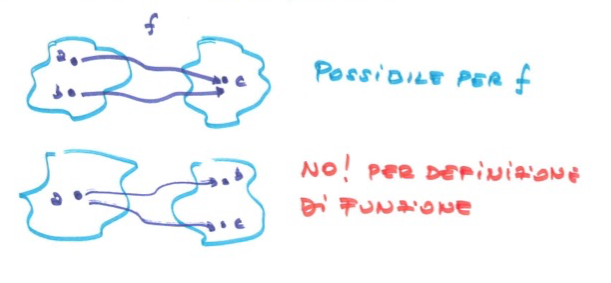 f
a
b
c
POSSIBILE PER f
a
b
c
NO! PER DEFINIZIONE
DI FUNZIONE